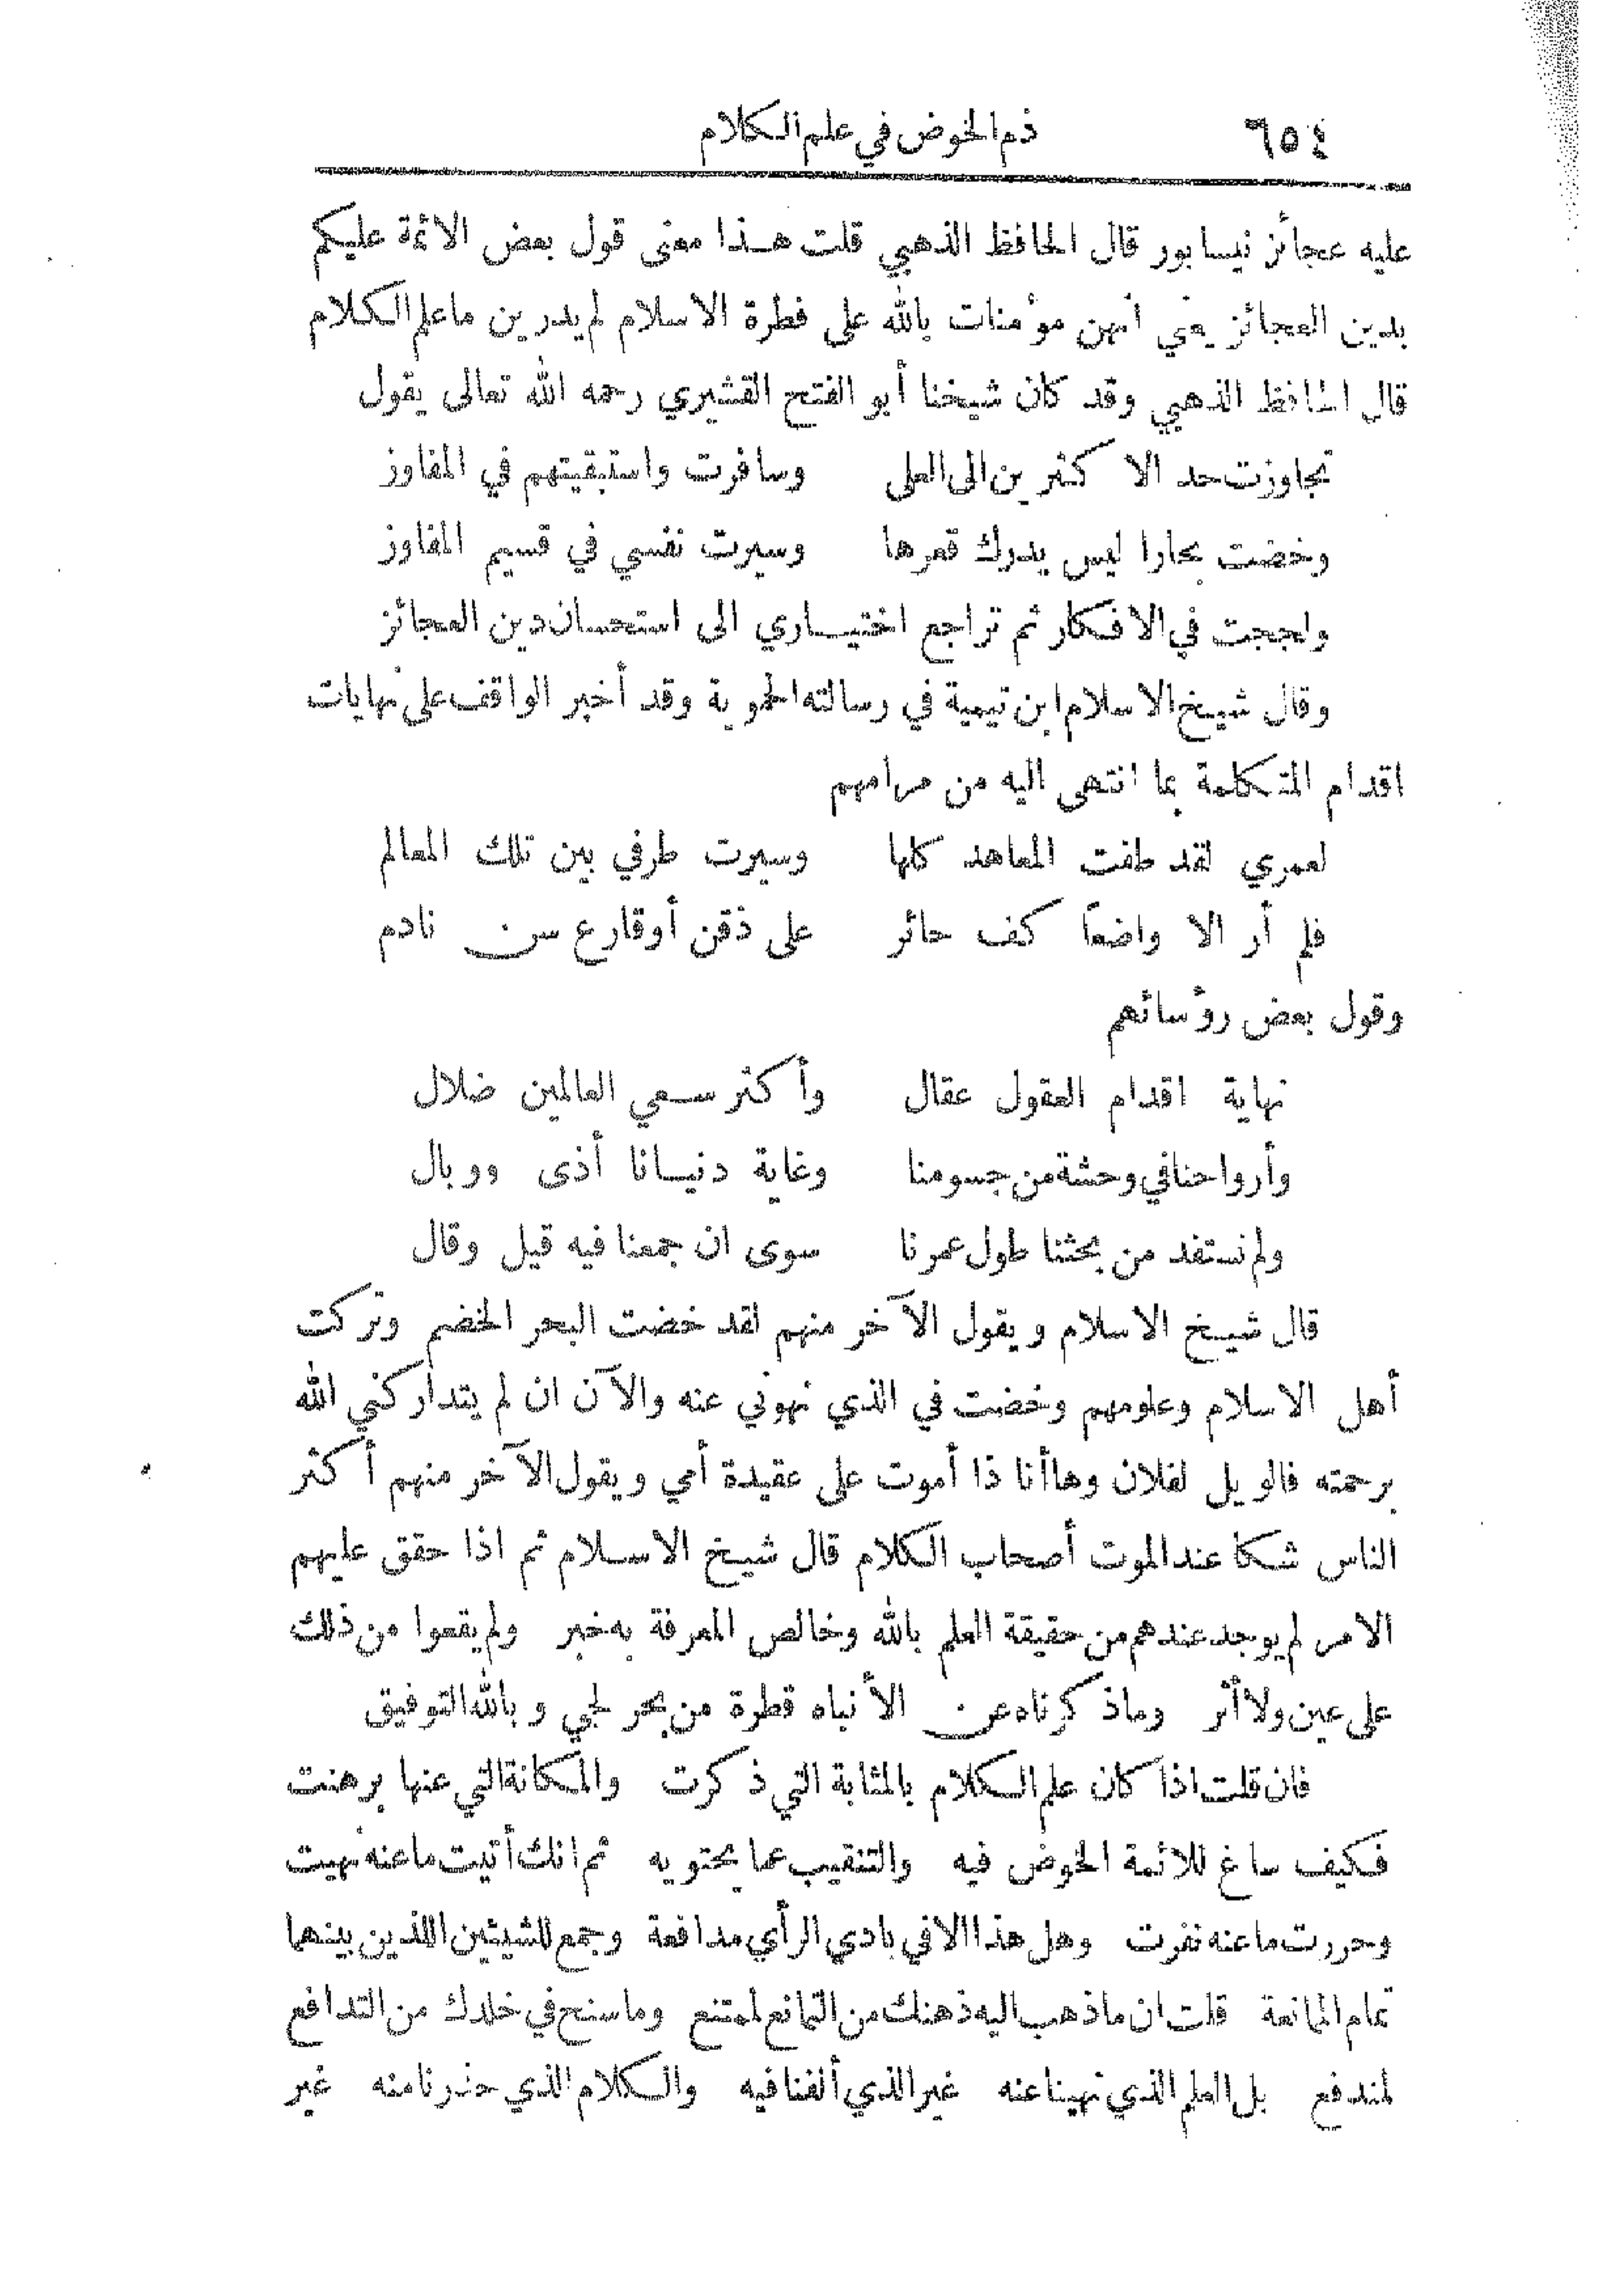 ٦٥٤ ذم الخوض في علم الكلام
عليه عجائز نيسابور قال الحافظ الذهبي قلت هذا معنى قول بعض الائمة عليكم
بدين العجائز يعني أنهن مؤمنات بالله على فطرة الاسلام لم يدرين ما علم الكلام
قال الحافظ الذهبي وقد كان شيخنا أبو الفتح القشيري رحمه الله تعالى يقول
تجاوزت حد الاكثرين الى العلى وسافرت واستبقيتهم في المفاوز
وخضت بحارا ليس يدرك قعرها وسيرت نفسي في قسيم المفاوز
ولججت في الافكار ثم تراجع اختياري الى استحسان دين العجائز
وقال شيخ الاسلام ابن تيمية في رسالته الحموية وقد أخبر الواقف على نهايات
اقدام المتكلمة بما انتهى اليه من مرامهم
لعمري لقد طفت المعاهد كلها وسيرت طرفي بين تلك المعالم
فلم أر الا واضعاً كف حائر على ذقن أو قارع سن نادم
وقول بعض رؤسائهم
نهاية اقدام العقول عقال وأكثر سعي العالمين ضلال
وأرواحنا في وحشة من جسومنا وغاية دنيانا أذى ووبال
ولم نستفد من بحثنا طول عمرنا سوى ان جمعنا فيه قيل وقال
قال شيخ الاسلام ويقول الآخر منهم لقد خضت البحر الخضم وتركت
أهل الاسلام وعلومهم وخضت في الذي نهوني عنه والآن ان لم يتداركني الله
برحمته فالويل لفلان وها أنا ذا أموت على عقيدة أمي ويقول الآخر منهم أكثر
الناس شكا عند الموت أصحاب الكلام قال شيخ الاسلام ثم اذا حقق عليهم
الامر لم يوجد عندهم من حقيقة العلم بالله وخالص المعرفة به خبر ولم يقعوا من ذلك
على عين ولا أثر وما ذكرناه عن الأنباه قطرة من بحر لجي وبالله التوفيق
فان قلت اذا كان علم الكلام بالمثابة التي ذكرت والمكانة التي عنها برهنت
فكيف ساغ للائمة الخوض فيه والتنقيب عما يحتويه ثم انك أتيت ما عنه نهيت
وحررت ما عنه نفرت وهل هذا الا في بادي الرأي مدافعة وجمع للشيئين اللذين بينهما
تمام الممانعة قلت ان ما ذهب اليه ذهنك من التمانع لممتنع وما سنح في خلدك من التدافع
لمندفع بل العلم الذي نهينا عنه غير الذي ألفنا فيه والكلام الذي حذرنا منه غير